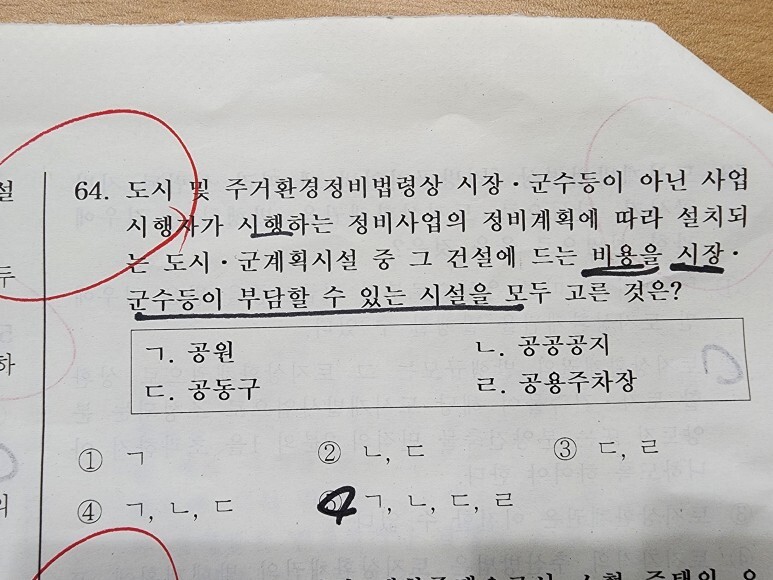 설
64. 도시 및 주거환경정비법령상 시장·군수등이 아닌 사업
시행자가 시행하는 정비사업의 정비계획에 따라 설치되
두
는 도시·군계획시설 중 그 건설에 드는 비용을 시장·
군수등이 부담할 수 있는 시설을 모두 고른 것은?
하
ㄱ. 공원 ㄴ. 공공공지
ㄷ. 공동구 ㄹ. 공용주차장
① ㄱ ② ㄴ, ㄷ ③ ㄷ, ㄹ
④ ㄱ, ㄴ, ㄷ ⑤ ㄱ, ㄴ, ㄷ, ㄹ
의